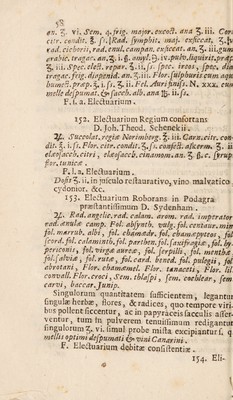 58
an. ʒ. vi. Sem. 4. frig. major. excort. ana ʒ. iii. Cort.
citr. condit. ℥. ſſ. Rad. ſymphit. maj. exſiccat. ʒ.
rad. cichorii, rad. enul. campan. exſiccat. an. ʒ. iii. gum
arabic. tragac. an. ʒ. ii. amyl. ʒ. iv. pulv. liquirit. præd.
ʒ. iii. Spec. elect. reper. ʒ. ii. ſſ. ſpec. ireos, ſpec. dia-
tragac. frigid. diapenid. an. ʒ. iii. Flor. ſulphuris cum aqu
humect. præp. ℥. i. ſſ. ʒ. ii. Fol. Auri finiſſ. N. xxx. cum
melle deſpumat. & ſacch. alb. ana ℔. ii. ſſ.
F. ſ. a. Electuarium.
152. Electuarium Regium conſortans
D. Joh. Theod. Schenckii.
℞. Succolat. regiæ Norimberg. ℥. iii. Carn. citr. con-
dit. ℥. i. ſſ. Flor. citr. condit. ℥. ſſ. confect. alkerm. ʒ. ii
elæoſacch. citri, elæoſacch. cinamom. an. ʒ. ſyrup
flor. tunicæ.
F. l. a. Electuarium.
Doſis ʒ. ii. in juſculo reſtaurativo, vino malvatico
cydoniot. &c.
153. Electuarium Roborans in Podagra
præſtantiſſimum D. Sydenham.
℞. Rad. angelic. rad. calam. arom. rad. imperator
rad. enulæ camp. Fol. abſynth. vulg. fol. centaur. min
fol. marrub. albi, fol. chamædr. fol. chamæpyteos, fol
ſcord. fol. calaminth. fol. parthen. fol. ſaxifragiæ, fol. hy-
periconis, fol. virgæ aureæ, fol. ſerpilli, fol. menthæ
fol. ſalviæ, fol. rutæ, fol. card. bened. fol. pulegii, fol
abrotani, Flor. chamæmel. Flor. tanaceti, Flor. lil.
convall. Flor. croci, Sem. thlaſpi, ſem. cochlear, ſem
carvi, baccar. Junip.
Singulorum quantitatem ſufficientem, legantur
ſingulæ herbæ, flores, & radices, quo tempore viri-
bus pollent ſiccentur, ac in papyraceis ſacculis aſſer-
ventur, tum in pulverem tenuiſſimum redigantur
ſingulorum ʒ. vi. ſimul probe miſta excipiantur ſ. q.
mellis optimi deſpumati & vini Canarini.
F. Electuarium debitæ conſiſtentiæ.
154. Ele-